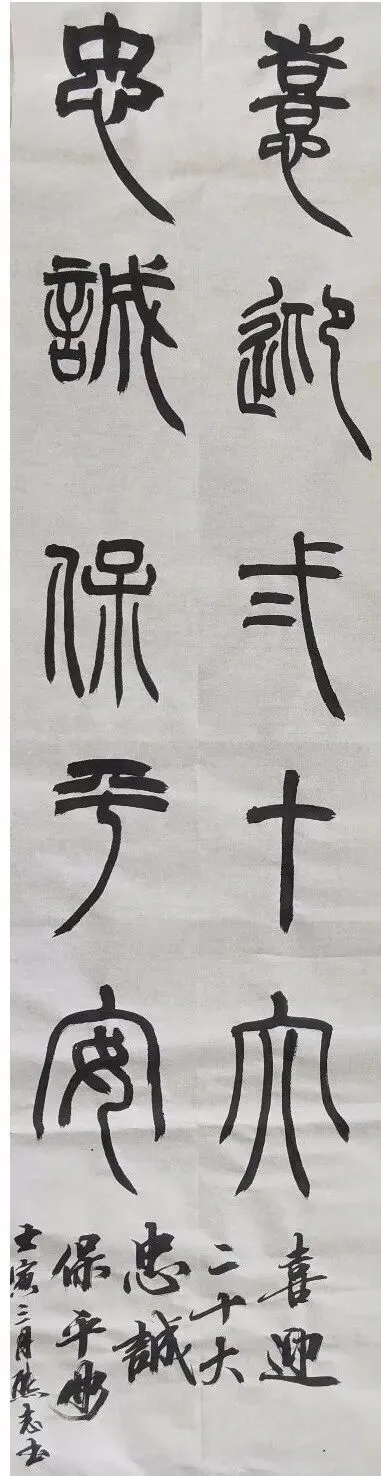 憙迎弍十大
忠誠保平安
喜迎
二十大
忠誠
保平安
壬寅三月熊志书